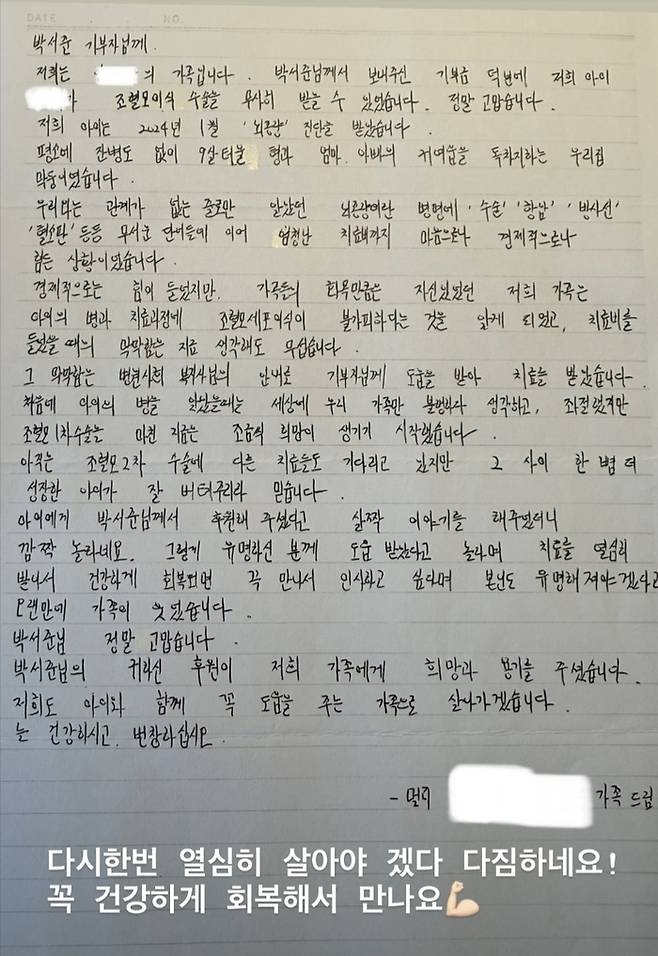 DATE . . NO.
박서준 기부자님께.
저희는 의 가족입니다. 박서준님께서 보내주신 기부금 덕분에 저희 아이
가 조혈모이식 수술을 무사히 받을 수 있었습니다. 정말 고맙습니다.
저희 아이는 2024년 1월 '뇌종양' 진단을 받았습니다.
평소에 잔병도 없이 9살 터울 형과 엄마. 아빠의 귀여움을 독차지하는 우리집
막둥이였습니다.
우리와는 관계가 없는 줄로만 알았던 뇌종양이란 병명에 '수술' '항암' '방사선'
'혈소판' 등등 무서운 단어들에 이어 엄청난 치료비까지 마음으로나 경제적으로나
힘든 상황이었습니다.
경제적으로는 힘이 들었지만, 가족들의 화목만큼은 자신있었던 저희 가족은
아이의 병과 치료과정에 조혈모세포이식이 불가피하다는 것을 알게 되었고, 치료비를
들었을 때의 막막함은 지금 생각해도 무섭습니다.
그 막막함은 병원사회 복지사님의 안내로 기부자님께 도움을 받아 치료를 받았습니다.
처음에 아이의 병을 알았을때는 세상에 우리 가족만 불행하다 생각하고, 좌절했지만
조혈모1차수술을 마친 지금은 조금씩 희망이 생기기 시작했습니다.
아직은 조혈모2차 수술에 다른 치료들도 기다리고 있지만 그 사이 한 뼘 더
성장한 아이가 잘 버텨주리라 믿습니다.
아이에게 박서준님께서 후원해 주셨다고 살짝 이야기를 해주었더니
깜짝 놀라네요. 그렇게 유명하신 분께 도움 받았다고 놀라며 치료를 열심히
받아서 건강하게 회복되면 꼭 만나서 인사하고 싶다며 본인도 유명해져야겠다고
오랜만에 가족이 웃었습니다.
박서준님 정말 고맙습니다.
박서준님의 귀하신 후원이 저희 가족에게 희망과 용기를 주셨습니다.
저희도 아이와 함께 꼭 도움을 주는 가족으로 살아가겠습니다.
늘 건강하시고. 번창하십시오.
- 멀리 가족 드림
다시한번 열심히 살아야 겠다 다짐하네요!
꼭 건강하게 회복해서 만나요💪🏻